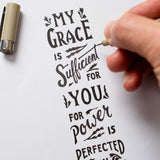 MY
GRACE
IS
Sufficient
FOR
YOU
FOR
power
IS
PERFECTED